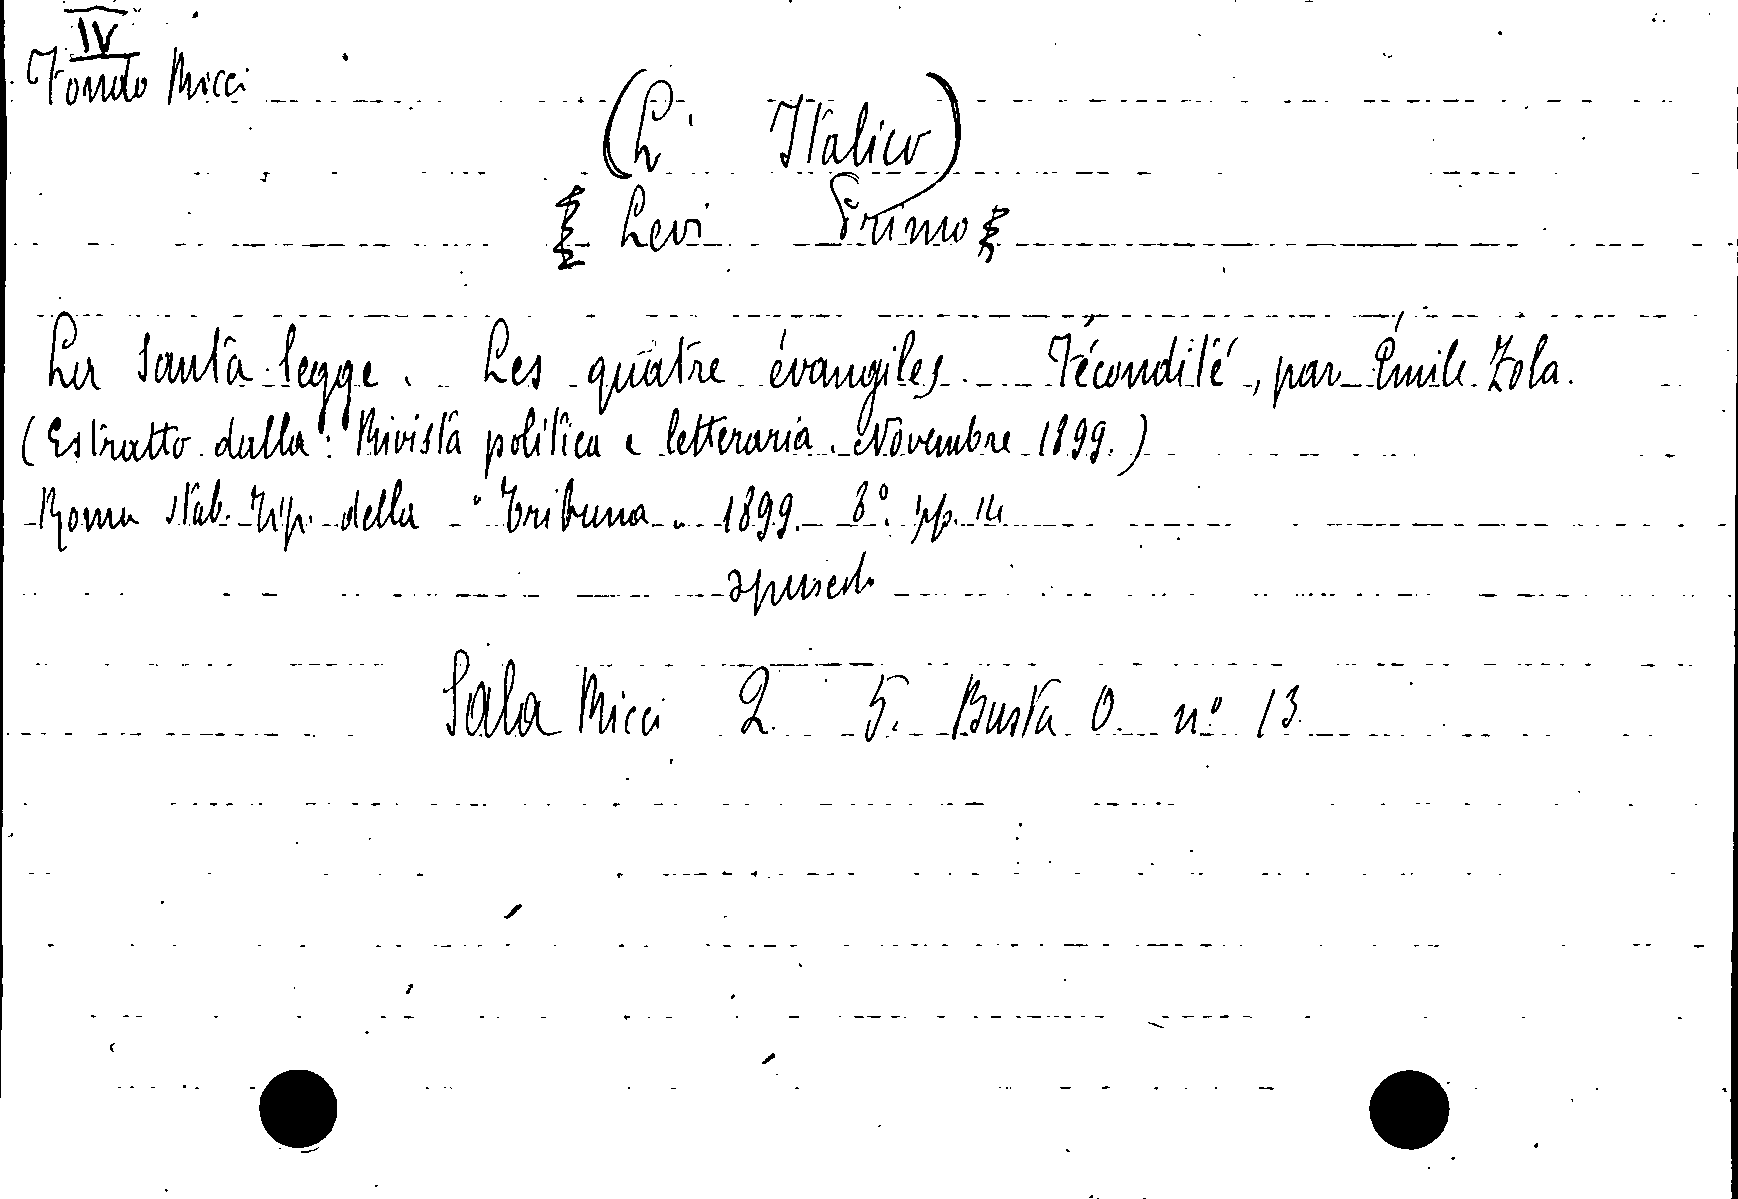 IV
Fondo Ricci
(L' Italico)
Levi Primo
La Santa legge. Les quatre évangiles. Fécondité, par Émile Zola.
(Estratto dalla: Rivista politica e letteraria. Novembre 1899.)
Roma Stab. Tip. della "Tribuna" 1899. 8º. pp. 14
opuscolo
Sala Ricci 2. 5. Busta O. nº 13.